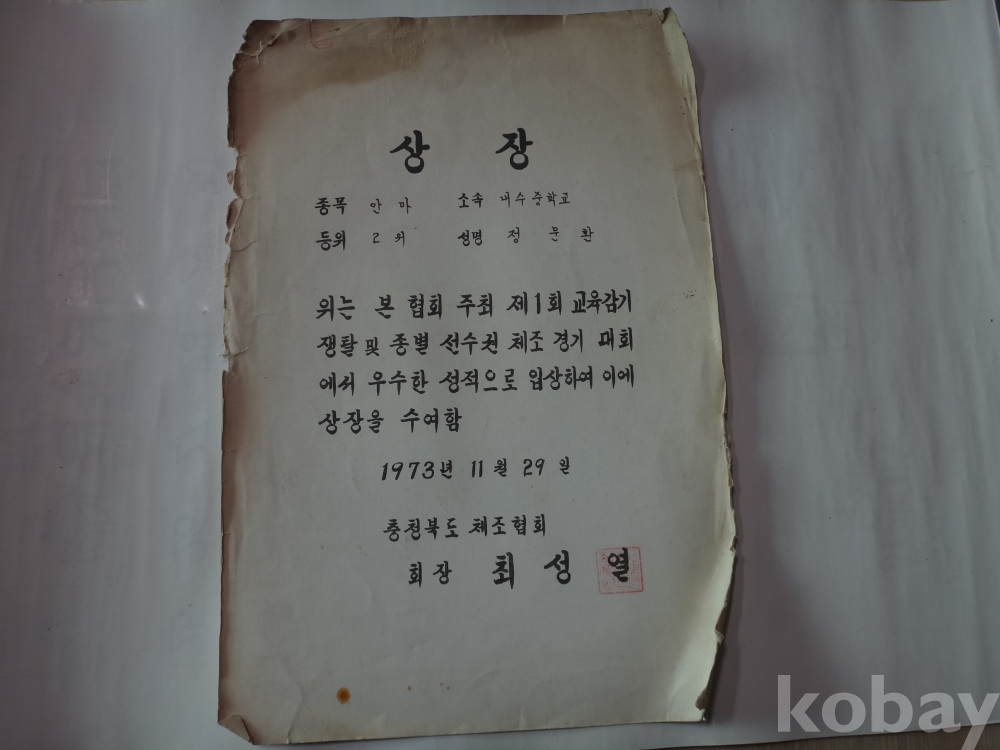 상 장
종목 안 마 소속 내수중학교
등위 2 위 성명 정 문 환
위는 본 협회 주최 제1회 교육감기
쟁탈 및 종별 선수권 체조 경기 대회
에서 우수한 성적으로 입상하여 이에
상장을 수여함
1973년 11월 29일
충청북도 체조협회
회장 최 성 열
kobay